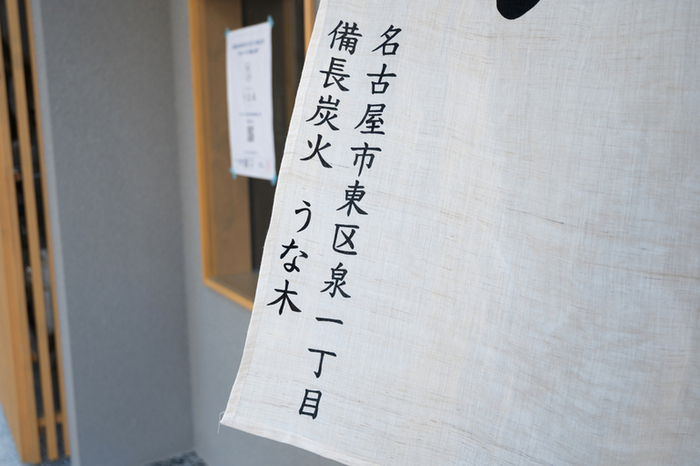 名古屋市東区泉一丁目
備長炭火 うな木